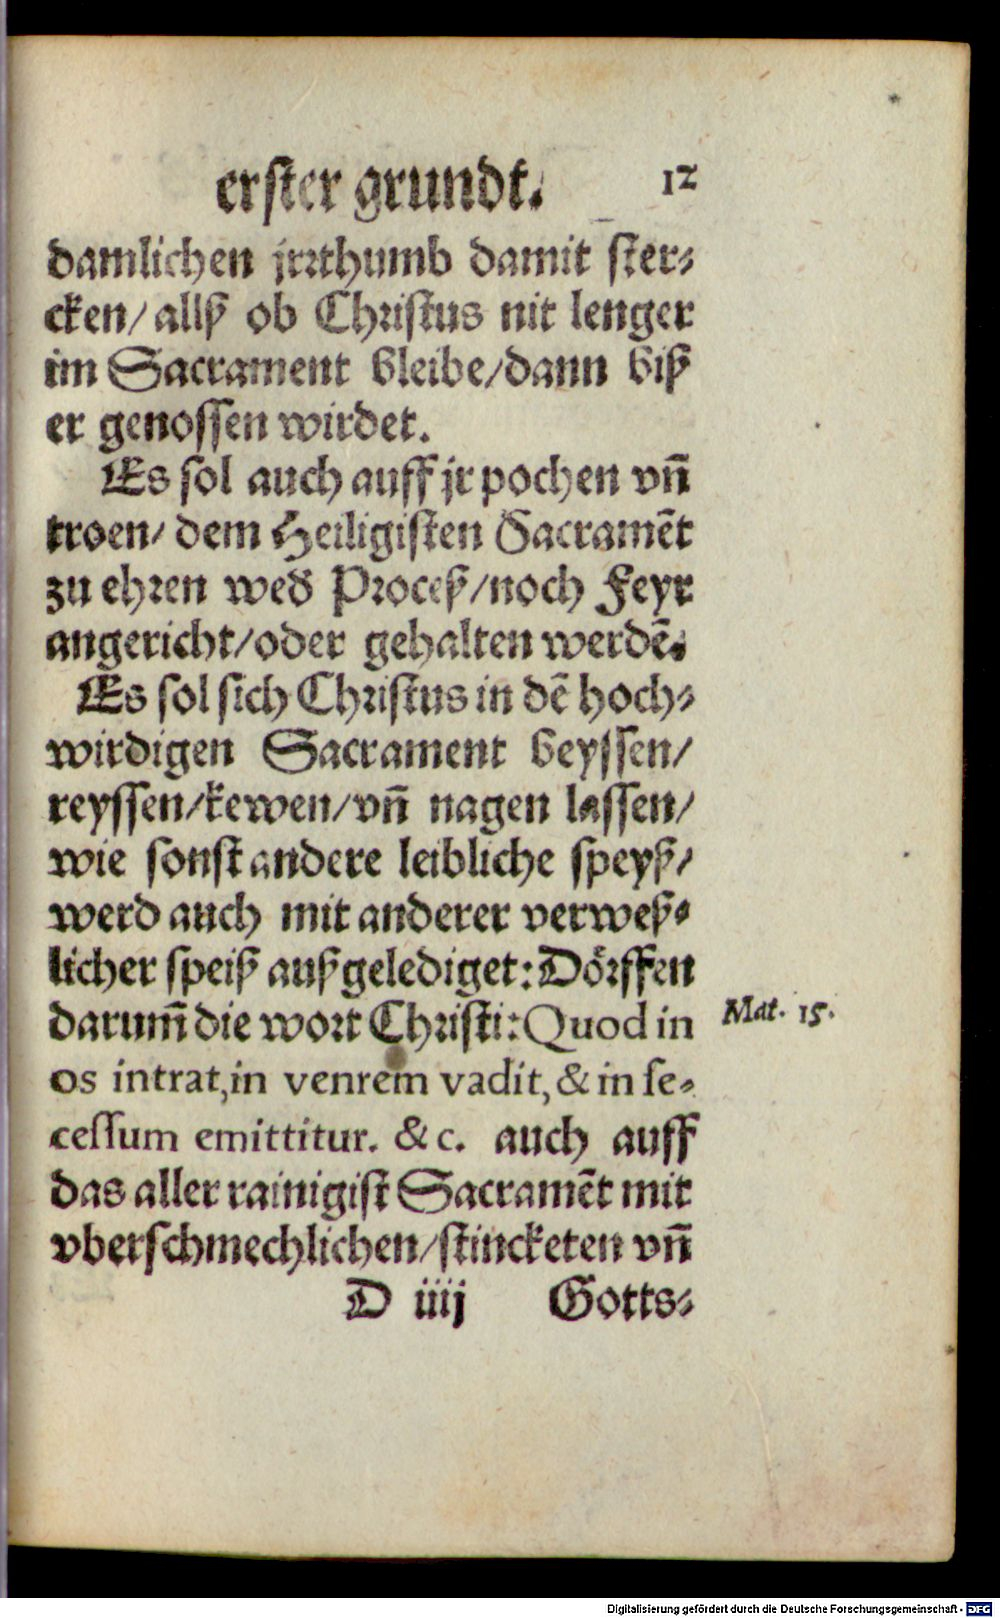 erster grundt. 12
damlichen jrrthumb damit ster⸗
cken/ allß ob Christus nit lenger
im Sacrament bleibe/dann biß
er genossen wirdet.
Es sol auch auff jr pochen vñ
troen/ dem Heiligisten Sacramẽt
zu ehren wed Proceß/noch Feyr
angericht/oder gehalten werdẽ.
Es sol sich Christus in dẽ hoch⸗
wirdigen Sacrament beyssen/
reyssen/kewen/vñ nagen lassen/
wie sonst andere leibliche speyß/
werd auch mit anderer verweß⸗
licher speiß außgelediget: Dörffen
darum̃ die wort Christi: Quod in
os intrat, in venrem vadit, & in se⸗
cessum emittitur. & c. auch auff
das aller rainigist Sacramẽt mit
vberschmechlichen/stincketen vñ
D iiij Gotts⸗
Mat. 15.
Digitalisierung gefördert durch die Deutsche Forschungsgemeinschaft - DFG